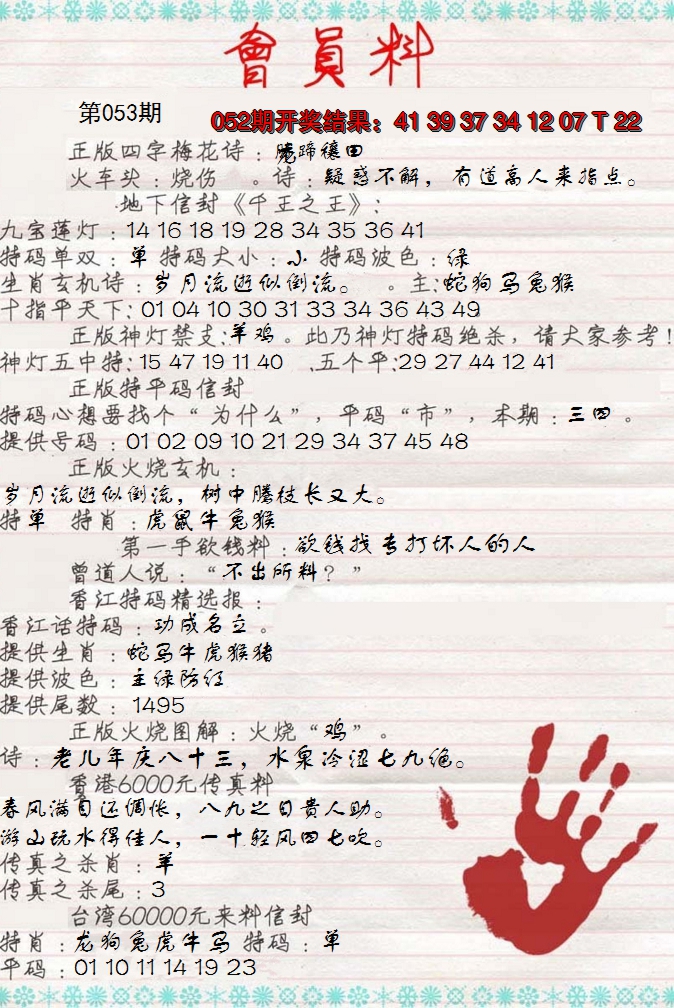 會員料
第053期
052期开奖结果：41 39 37 34 12 07 T 22
正版四字梅花诗：虎蹄穰田
火车头：烧伤 。诗：疑惑不解，有道高人来指点。
地下信封《千王之王》：
九宝莲灯：14 16 18 19 28 34 35 36 41
特码单双：单 特码大小：小 特码波色：绿
生肖玄机诗：岁月流逝似倒流。 。主：蛇狗马兔猴
十指平天下：01 04 10 30 31 33 34 36 43 49
正版神灯禁支：羊鸡。此乃神灯特码绝杀，请大家参考！
神灯五中特：15 47 19 11 40 .五个平：29 27 44 12 41
正版特平码信封
特码心想要找个“为什么”，平码“市”，本期：三四。
提供号码：01 02 09 10 21 29 34 37 45 48
正版火烧玄机：
岁月流逝似倒流，树中腾枝长又大。
特单 特肖：虎鼠牛兔猴
第一手欲钱料：欲钱找专打坏人的人
曾道人说：“不出所料？”
香江特码精选报：
香江话特码：功成名立。
提供生肖：蛇马牛虎猴猪
提供波色：主绿防红
提供尾数：1495
正版火烧图解：火烧“鸡”。
诗：老儿年庆八十三，水泉冷涩七九绝。
香港6000元传真料
春风满目还惆怅，八九之日贵人助。
游山玩水得佳人，一十轻风四七吹。
传真之杀肖：羊
传真之杀尾：3
台湾60000元来料信封
特肖：龙狗兔虎牛马 特码：单
平码：01 10 11 14 19 23